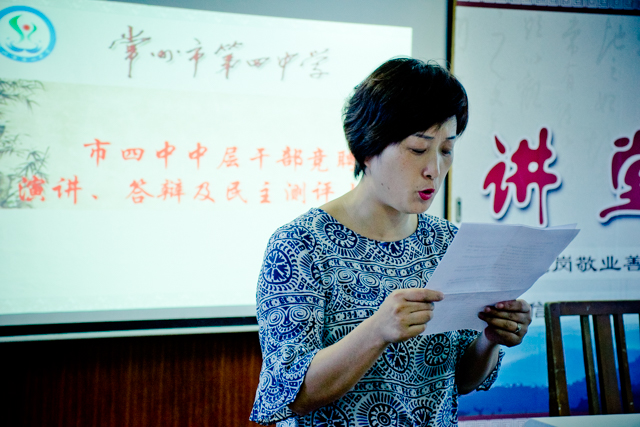 常州市第四中学
市四中中层干部竞聘
演讲、答辩及民主测评
讲堂
岗敬业善
信